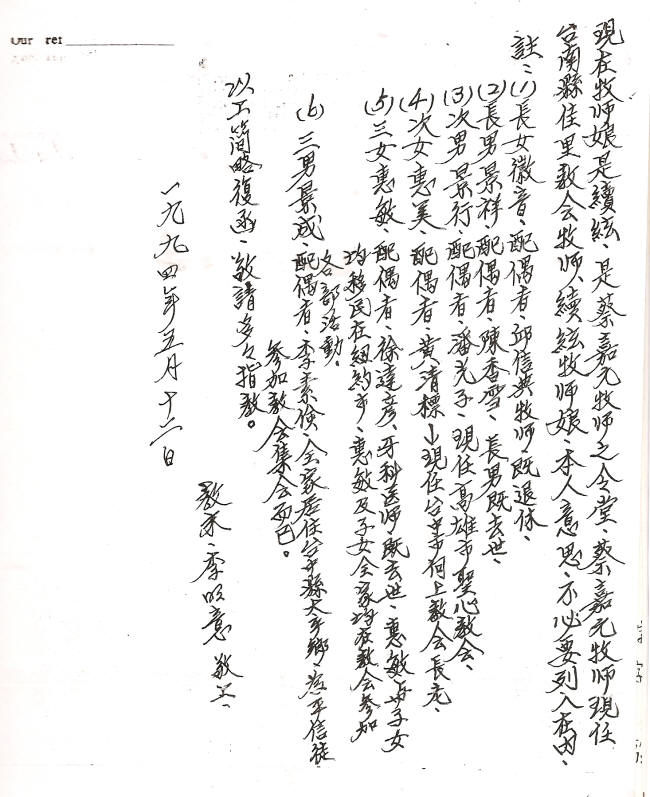 Our ref
現在牧师娘是續絃、是蔡嘉元牧师之令堂、蔡嘉元牧师現任
台南縣佳里教会牧师、續絃牧师娘、本人意思、不必要列入在内、
註：(1)長女徽音、配偶者、邱信典牧师、既退休、
(2)長男景祥、配偶者、陳香雪、長男既去世、
(3)次男景行、配偶者、潘光子、現任高雄市聖心教会、
(4)次女惠美、配偶者、黃清標、現任台中市何上教会長老、
(5)三女惠敏、配偶者、徐達彦、牙科医师既去世、惠敏与子女
均移民在紐約市、惠敏及子女全家均在教会参加
各部活動、
(6)三男景成、配偶者、李素儉、全家居住台中縣大平鄉、為平信徒
参加教会集会而已。
以上簡略復函、敬請多々指教。
一九九四年五月十二日
教末、李昭意 敬上、